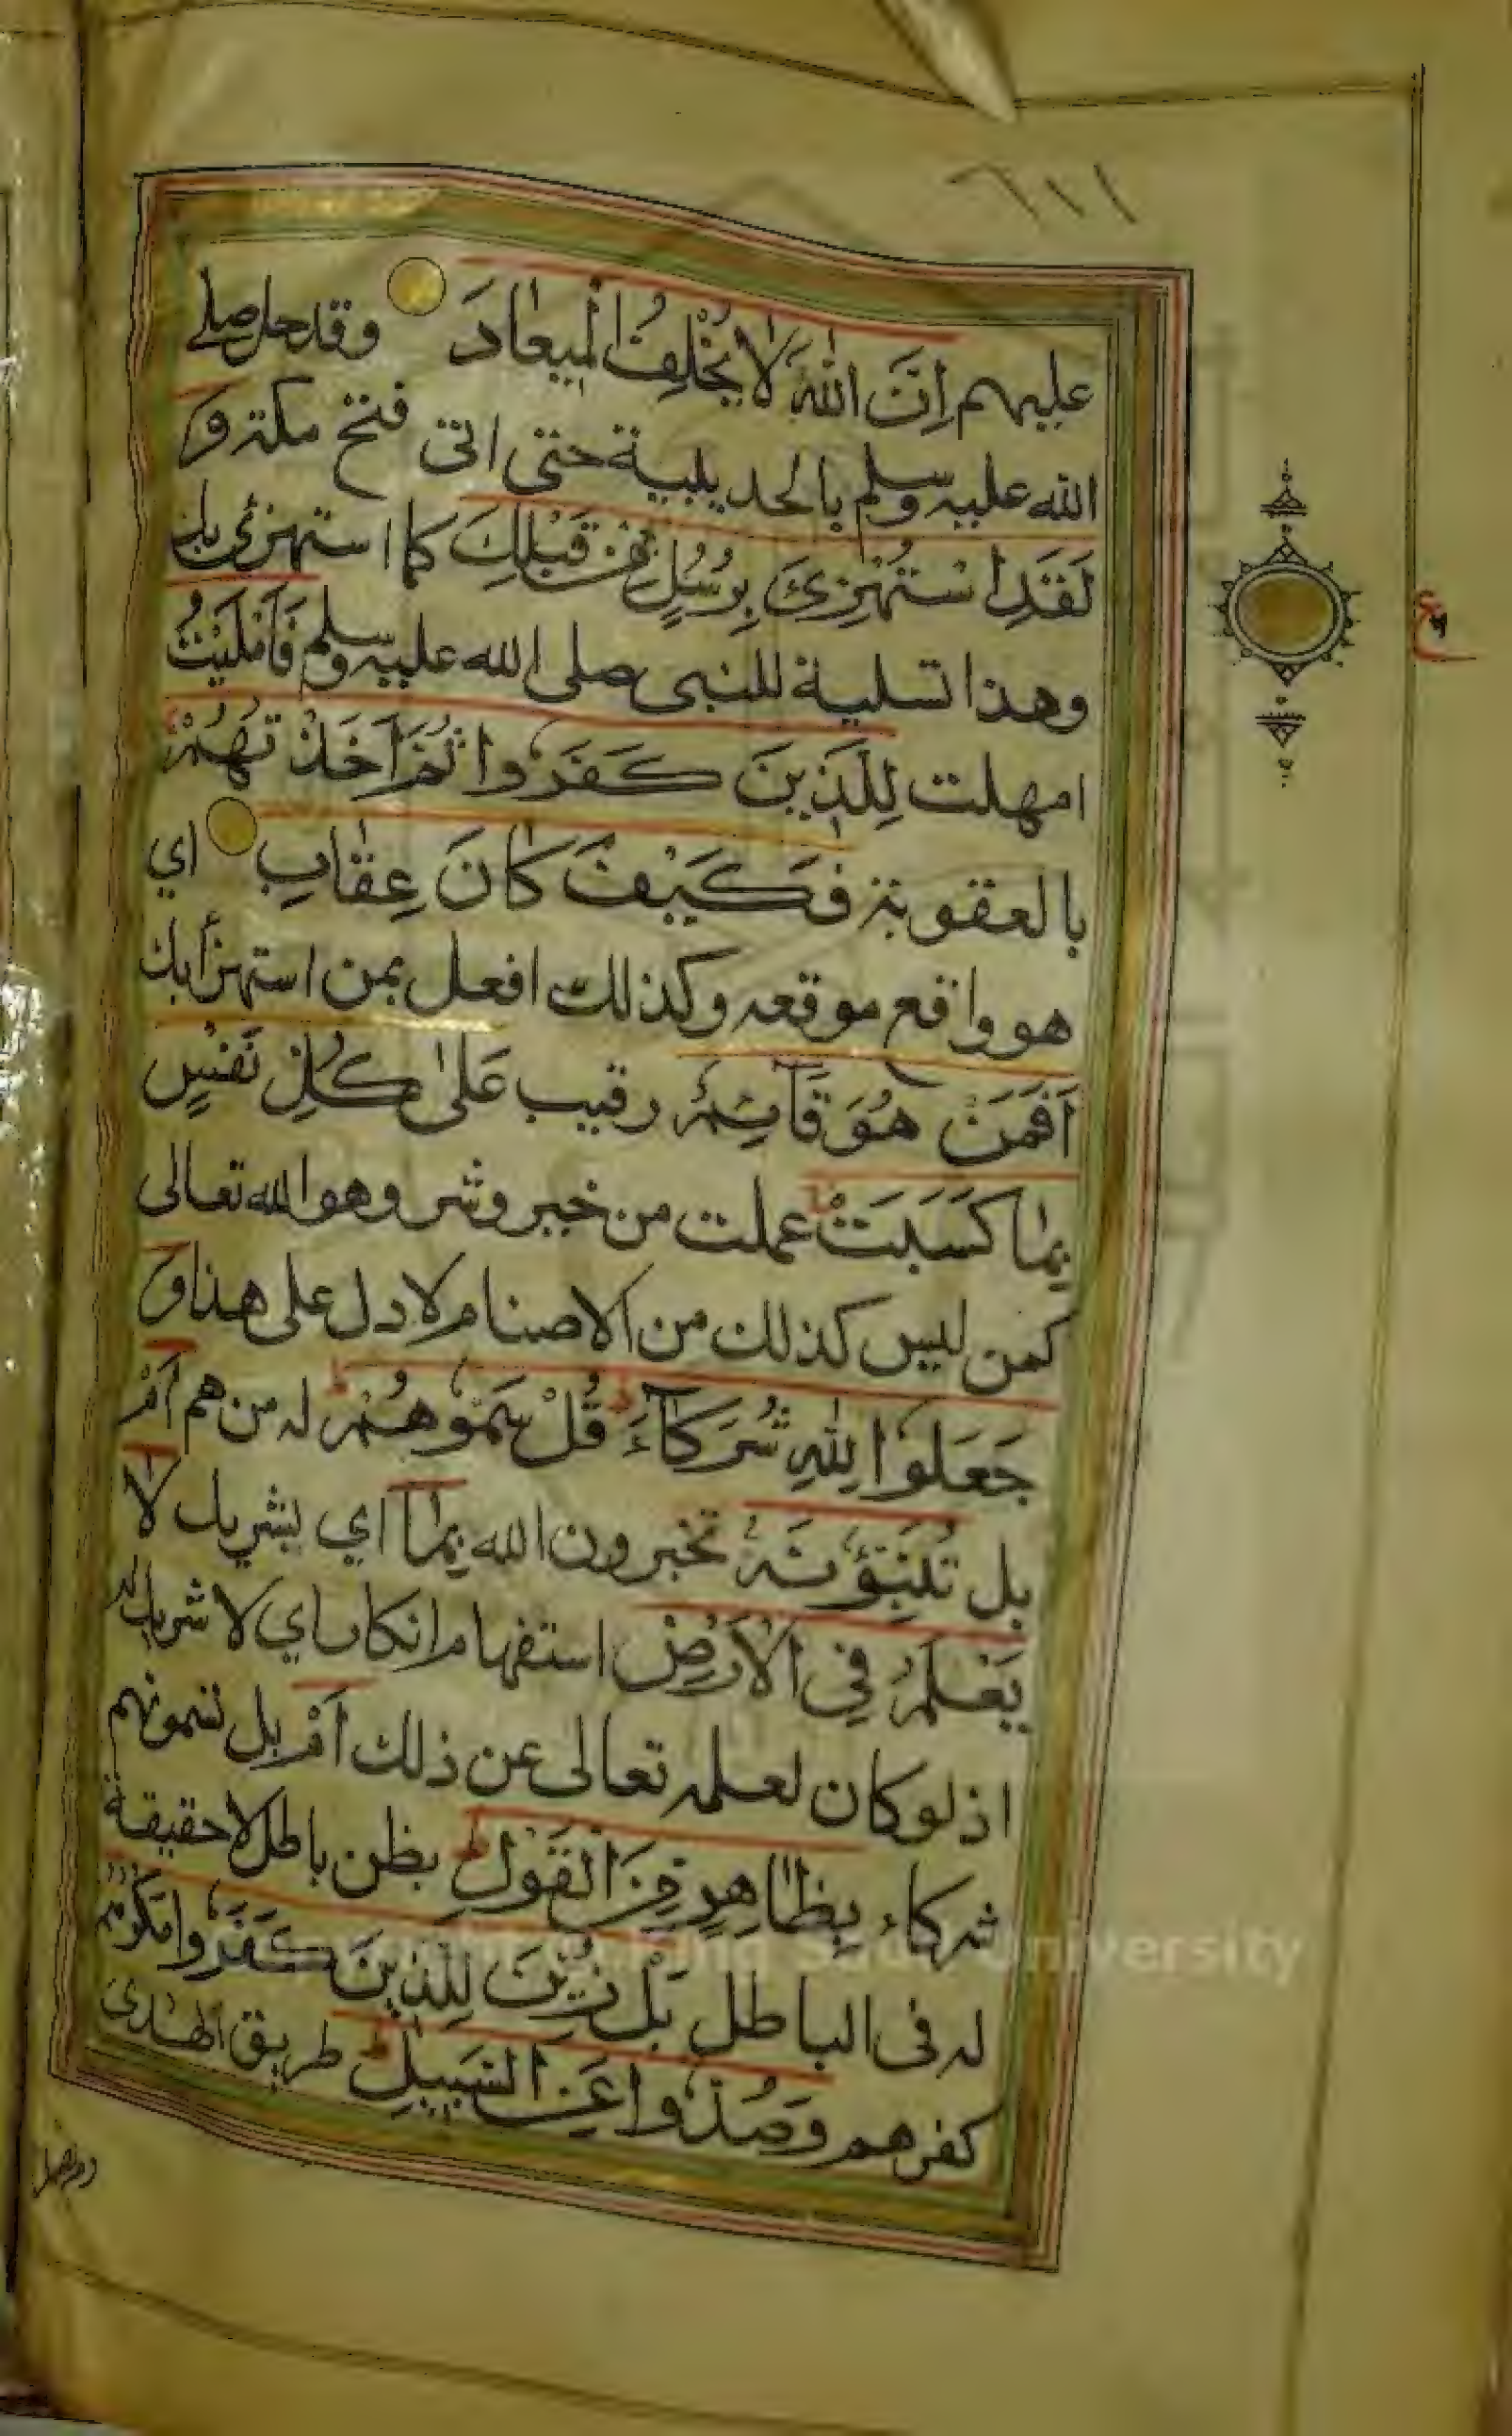 ٦١١
عليهم اِنَّ اللّٰهَ لَا يُخْلِفُ الْمِيعَادَ وقد حل صلے
الله عليه وسلم بالحديبية حتى اتى فتح مكة وَ
لَقَدِ اسْتُهْزِئَ بِرُسُلٍ مِّن قَبْلِكَ كما استهزئ بك
وهذا تسلية للنبى صلى الله عليه وسلم فَاَمْلَيْتُ
امهلت لِلَّذِينَ كَفَرُوا ثُمَّ اَخَذْتُهُمْ
بالعقوبة فَكَيْفَ كَانَ عِقَابِ اي
هو واقع موقعه وكذلك افعل بمن استهزأ بك
اَفَمَنْ هُوَ قَآئِمٌ رقيب عَلٰى كُلِّ نَفْسٍ
بِمَا كَسَبَتْ عملت من خير وشر وهو الله تعالى
كمن ليس كذلك من الاصنام لا دل على هذا وَ
جَعَلُوا لِلّٰهِ شُرَكَآءَ قُلْ سَمُّوهُمْ له من هم اَمْ
بل تُنَبِّؤُنَهٗ تخبرون الله بِمَا اي بشريك لَا
يَعْلَمُ فِي الْاَرْضِ استفهام انكار اي لا شريك له
اذ لو كان لعلمه تعالى عن ذلك اَمْ بل تسمونهم
شركاء بِظَاهِرٍ مِّنَ الْقَوْلِ بظن باطل لا حقيقة
له فى الباطل بَلْ زُيِّنَ لِلَّذِينَ كَفَرُوا مَكْرُهُمْ
كفرهم وَصُدُّوا عَنِ السَّبِيلِ طريق الهدى